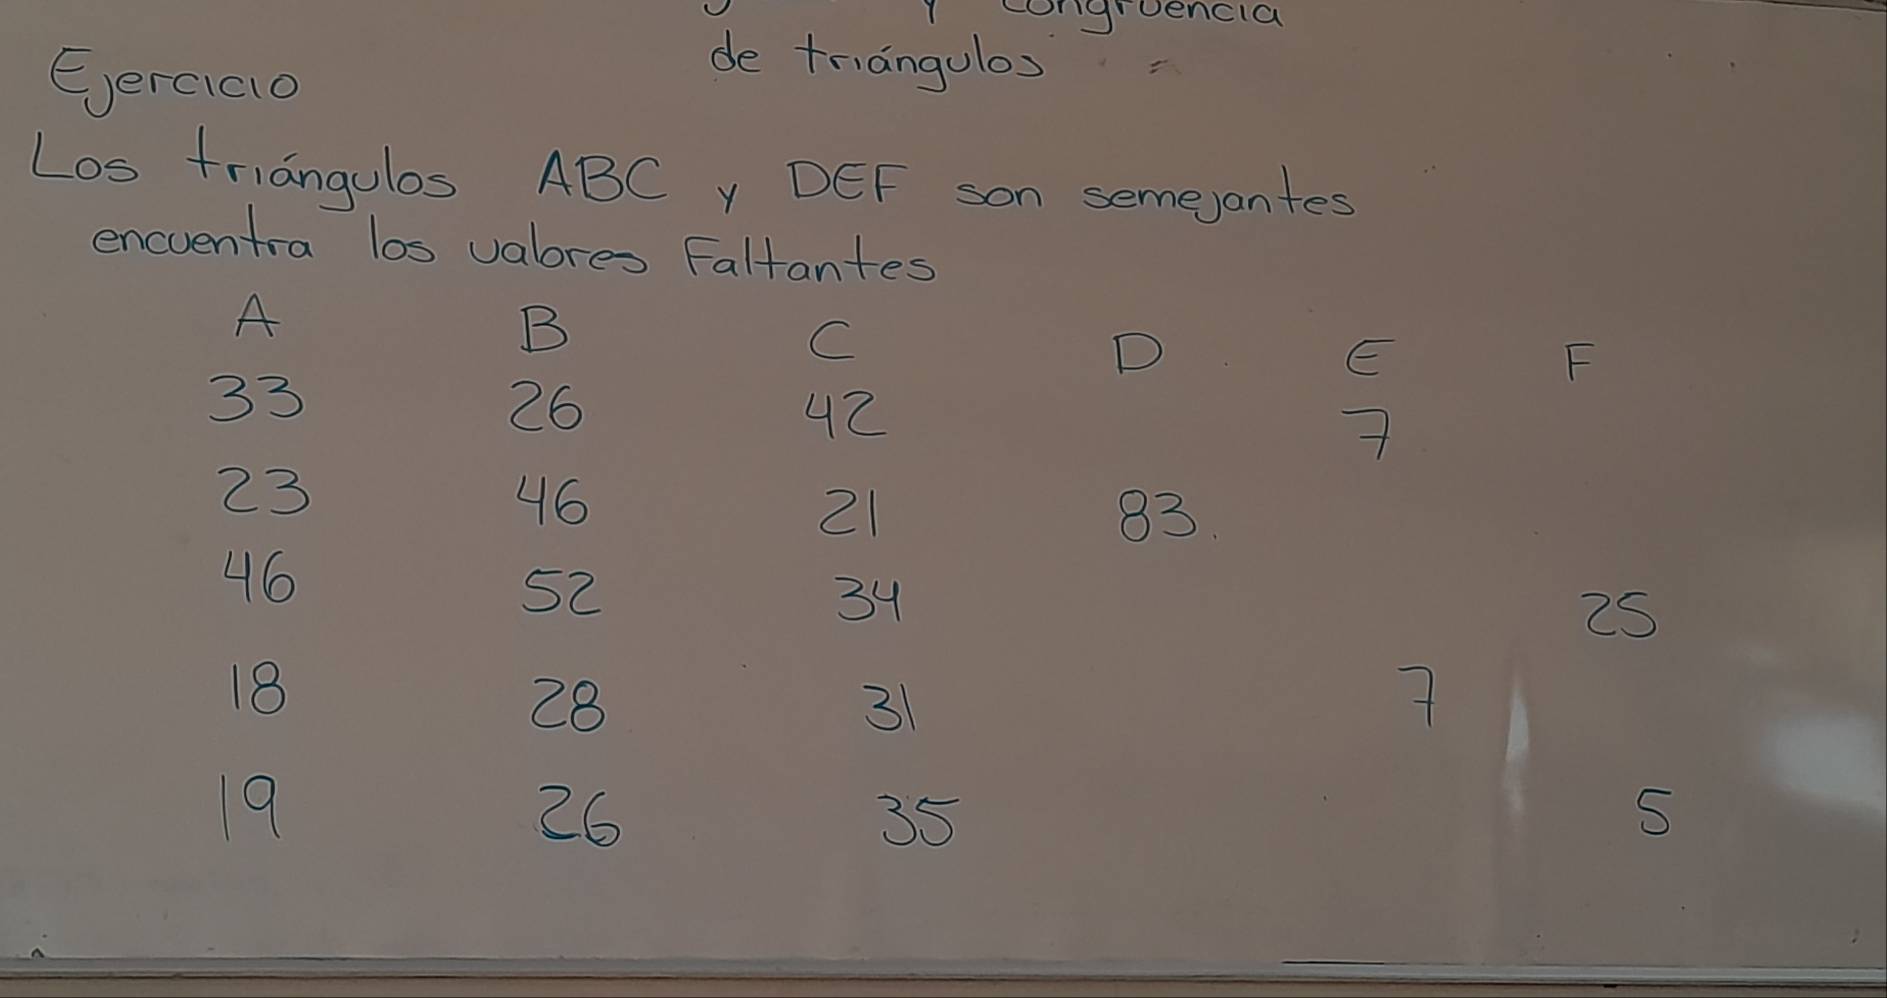 y congruencia
de triángulos
Ejercicio
Los triángulos ABC y DEF son semejantes
encuentra los valores Faltantes
A B C D E F
33 26 42 7
23 46 21 83.
46 52 34 25
18 28 31 7
19 26 35 5